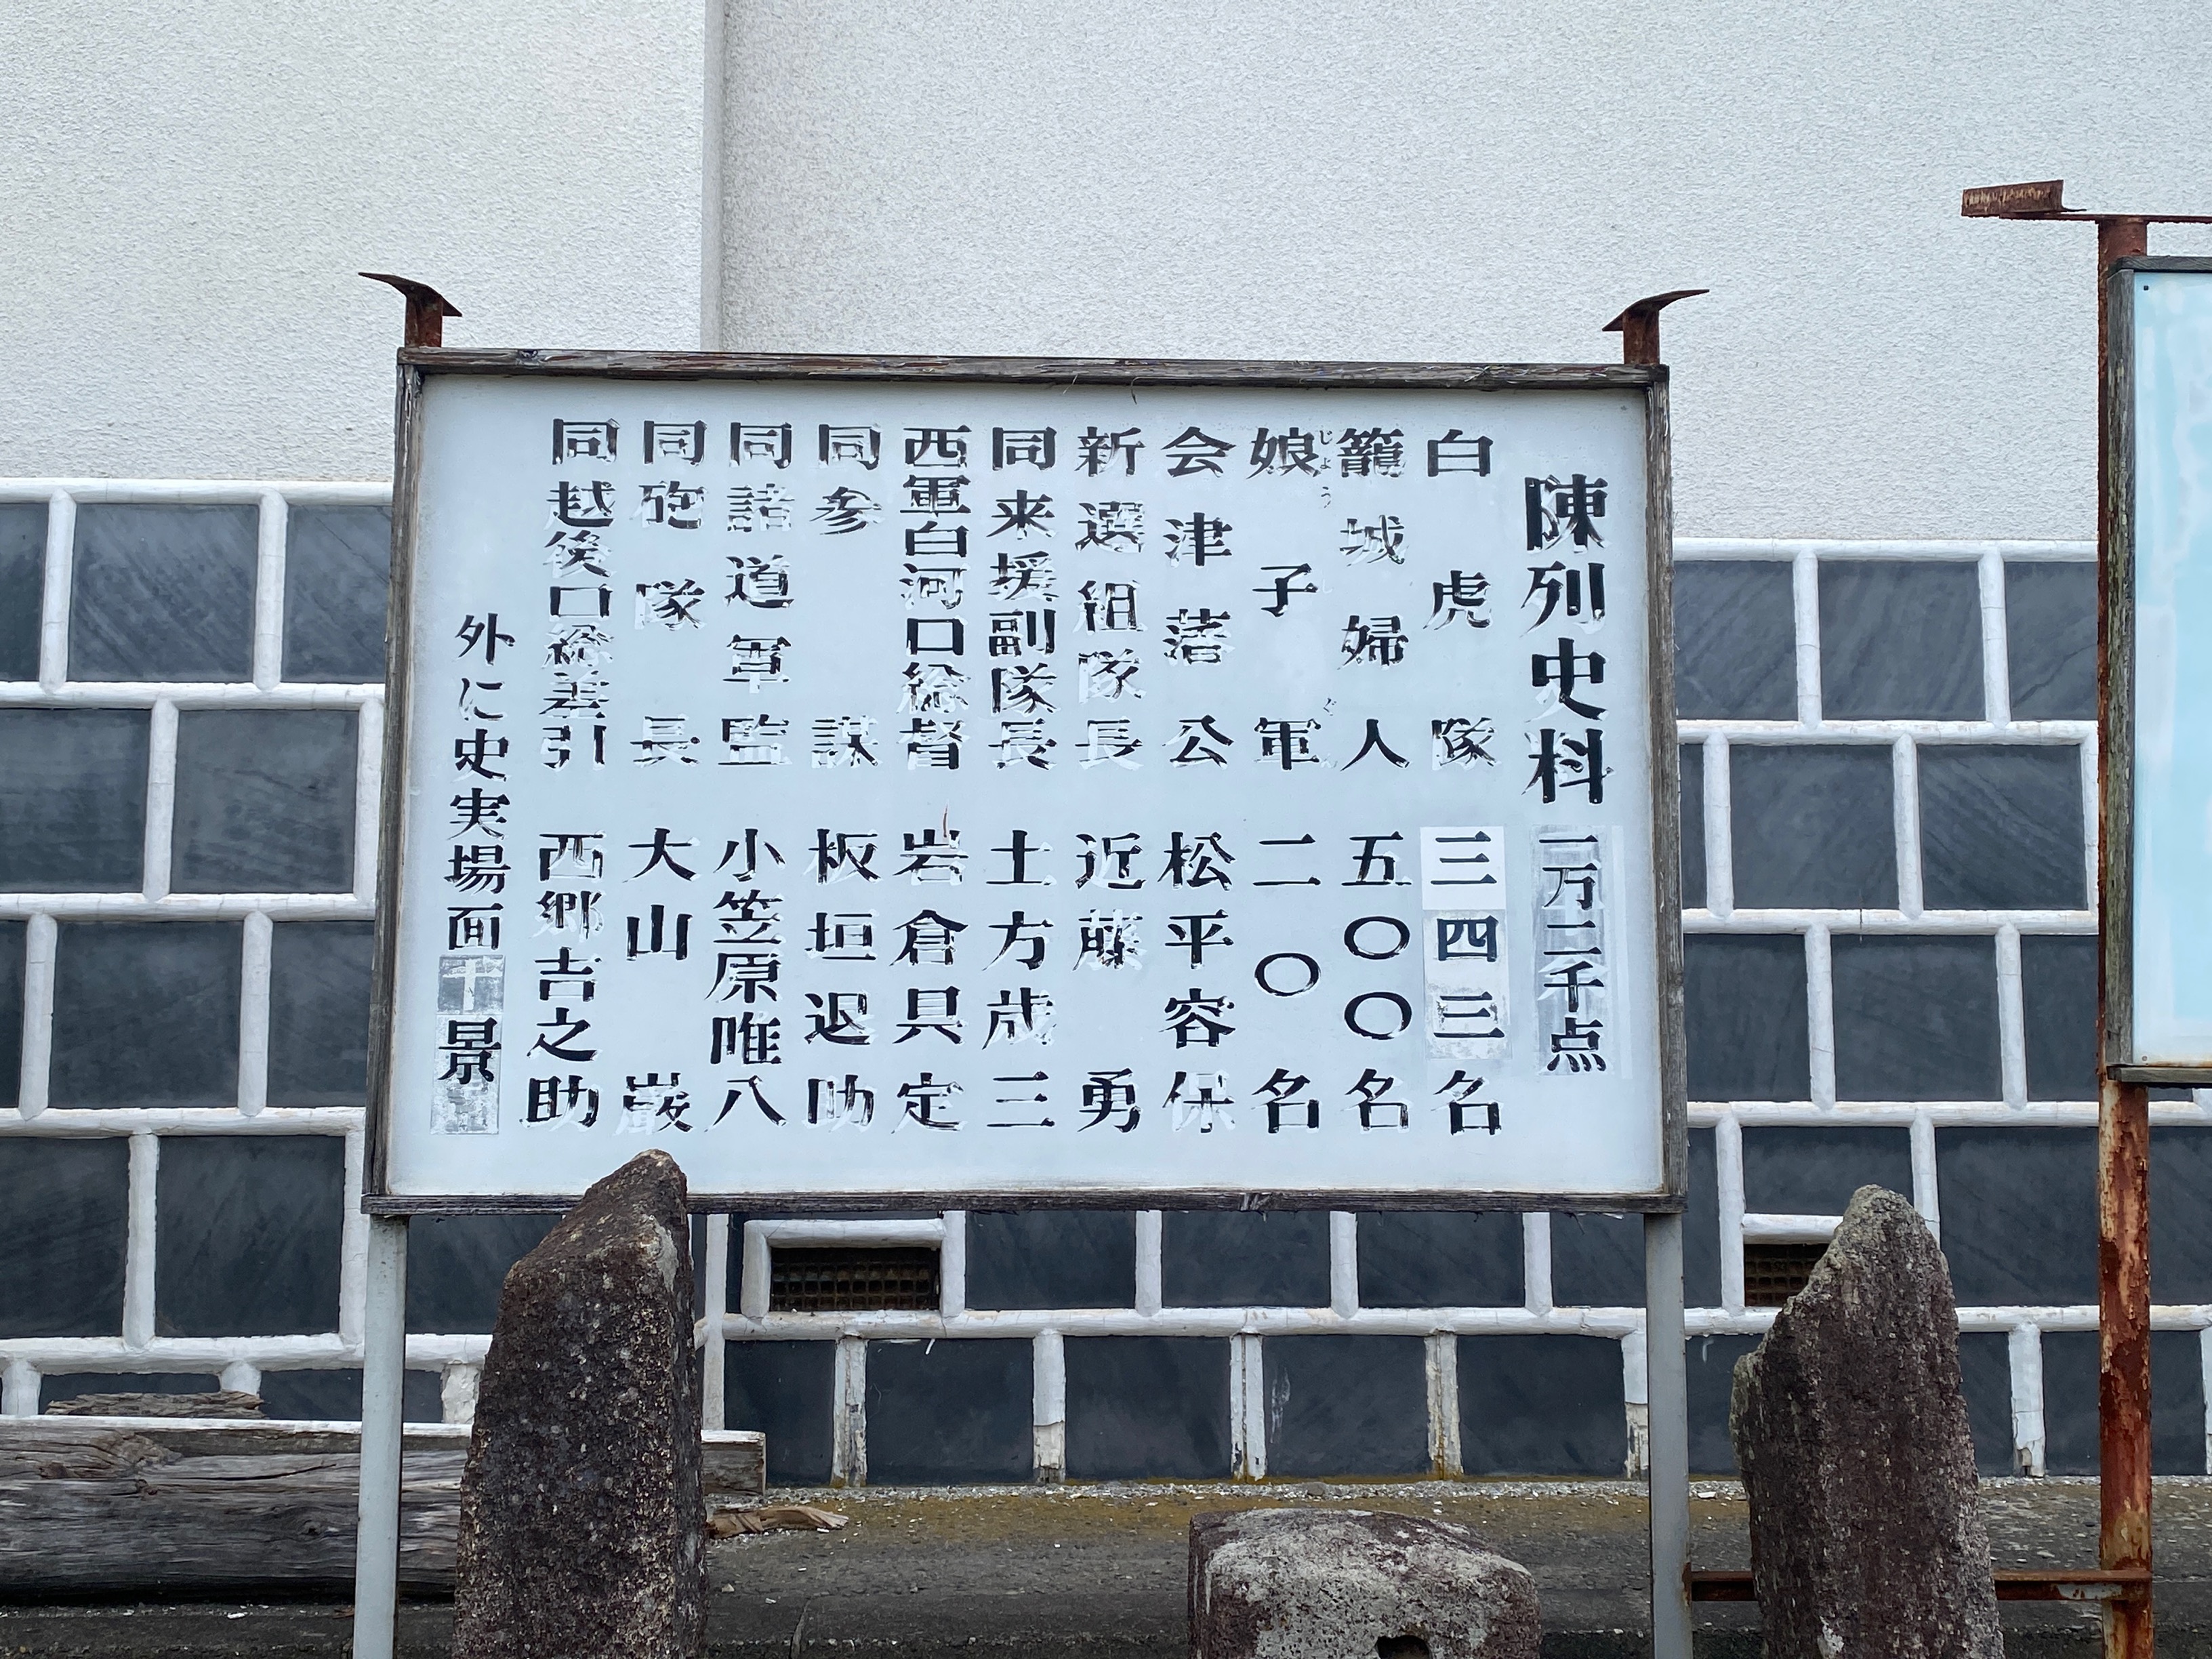 陳列史料 一万二千点
白虎隊 三四三名
籠城婦人 五〇〇名
娘子軍 二〇名
じょうし ぐん
会津藩公 松平容保
新選組隊長 近藤勇
同来援副隊長 土方歳三
西軍白河口総督 岩倉具定
同参謀 板垣退助
同諸道軍監 小笠原唯八
同砲隊長 大山巌
同越後口総差引 西郷吉之助
外に史実場面十景